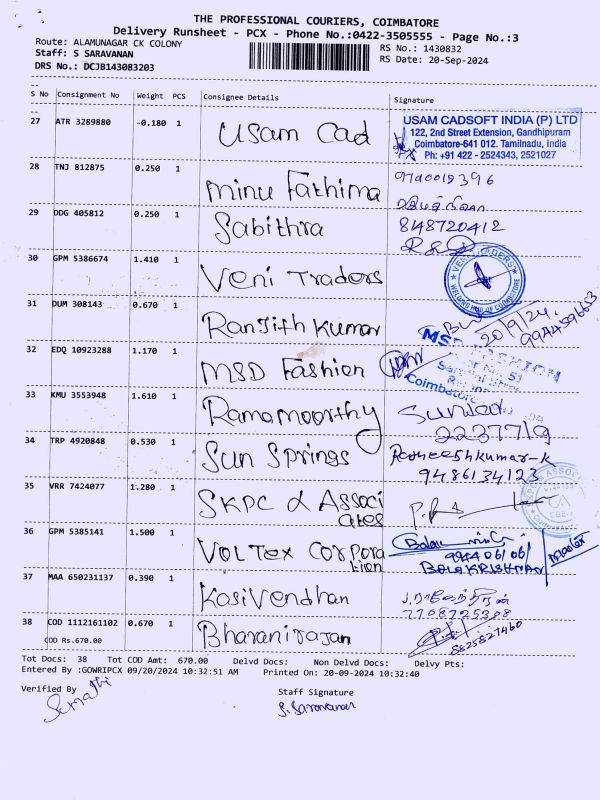 THE PROFESSIONAL COURIERS, COIMBATORE
Delivery Runsheet - PCX - Phone No.:0422-3505555 - Page No.:3
Route: ALAMUNAGAR CK COLONY
RS No.: 1430832
Staff: S SARAVANAN
RS Date: 20-Sep-2024
DRS No.: DCJB143083203
S No Consignment No Weight PCS Consignee Details Signature
27 ATR 3289880 -0.180 1 Usam Cad
USAM CADSOFT INDIA (P) LTD
122, 2nd Street Extension, Gandhipuram
Coimbatore-641 012. Tamilnadu, India
Ph: +91 422 - 2524343, 2521027
28 TNJ 812875 0.250 1 Minu Fathima
29 DDG 405812 0.250 1 Sabithra 848720412
30 GPM 5386674 1.410 1 Veni Traders
VENI TRADERS
31 DUM 308143 0.670 1 Ranjith Kumar
20/9/24
32 EDQ 10923288 1.170 1 MSD Fashion
33 KMU 3553948 1.610 1 Ramamoorthy
2237719
34 TRP 4920848 0.530 1 Sun Springs
Ratheeshkumar-K
9486134123
35 VRR 7424077 1.280 1 SKPC & Associ
ates
36 GPM 5385141 1.500 1 Voltex Corpora
tion
BOLAKRISHNAN
37 MAA 650231137 0.390 1 Kasivendhan
38 COD 1112161102 0.670 1 Bharanirajan
COD Rs.670.00
8825827460
Tot Docs: 38 Tot COD Amt: 670.00 Delvd Docs: Non Delvd Docs: Delvy Pts:
Entered By :GOWRIPCX 09/20/2024 10:32:51 AM Printed On: 20-09-2024 10:32:40
Verified By
Staff Signature
S. Saravanan